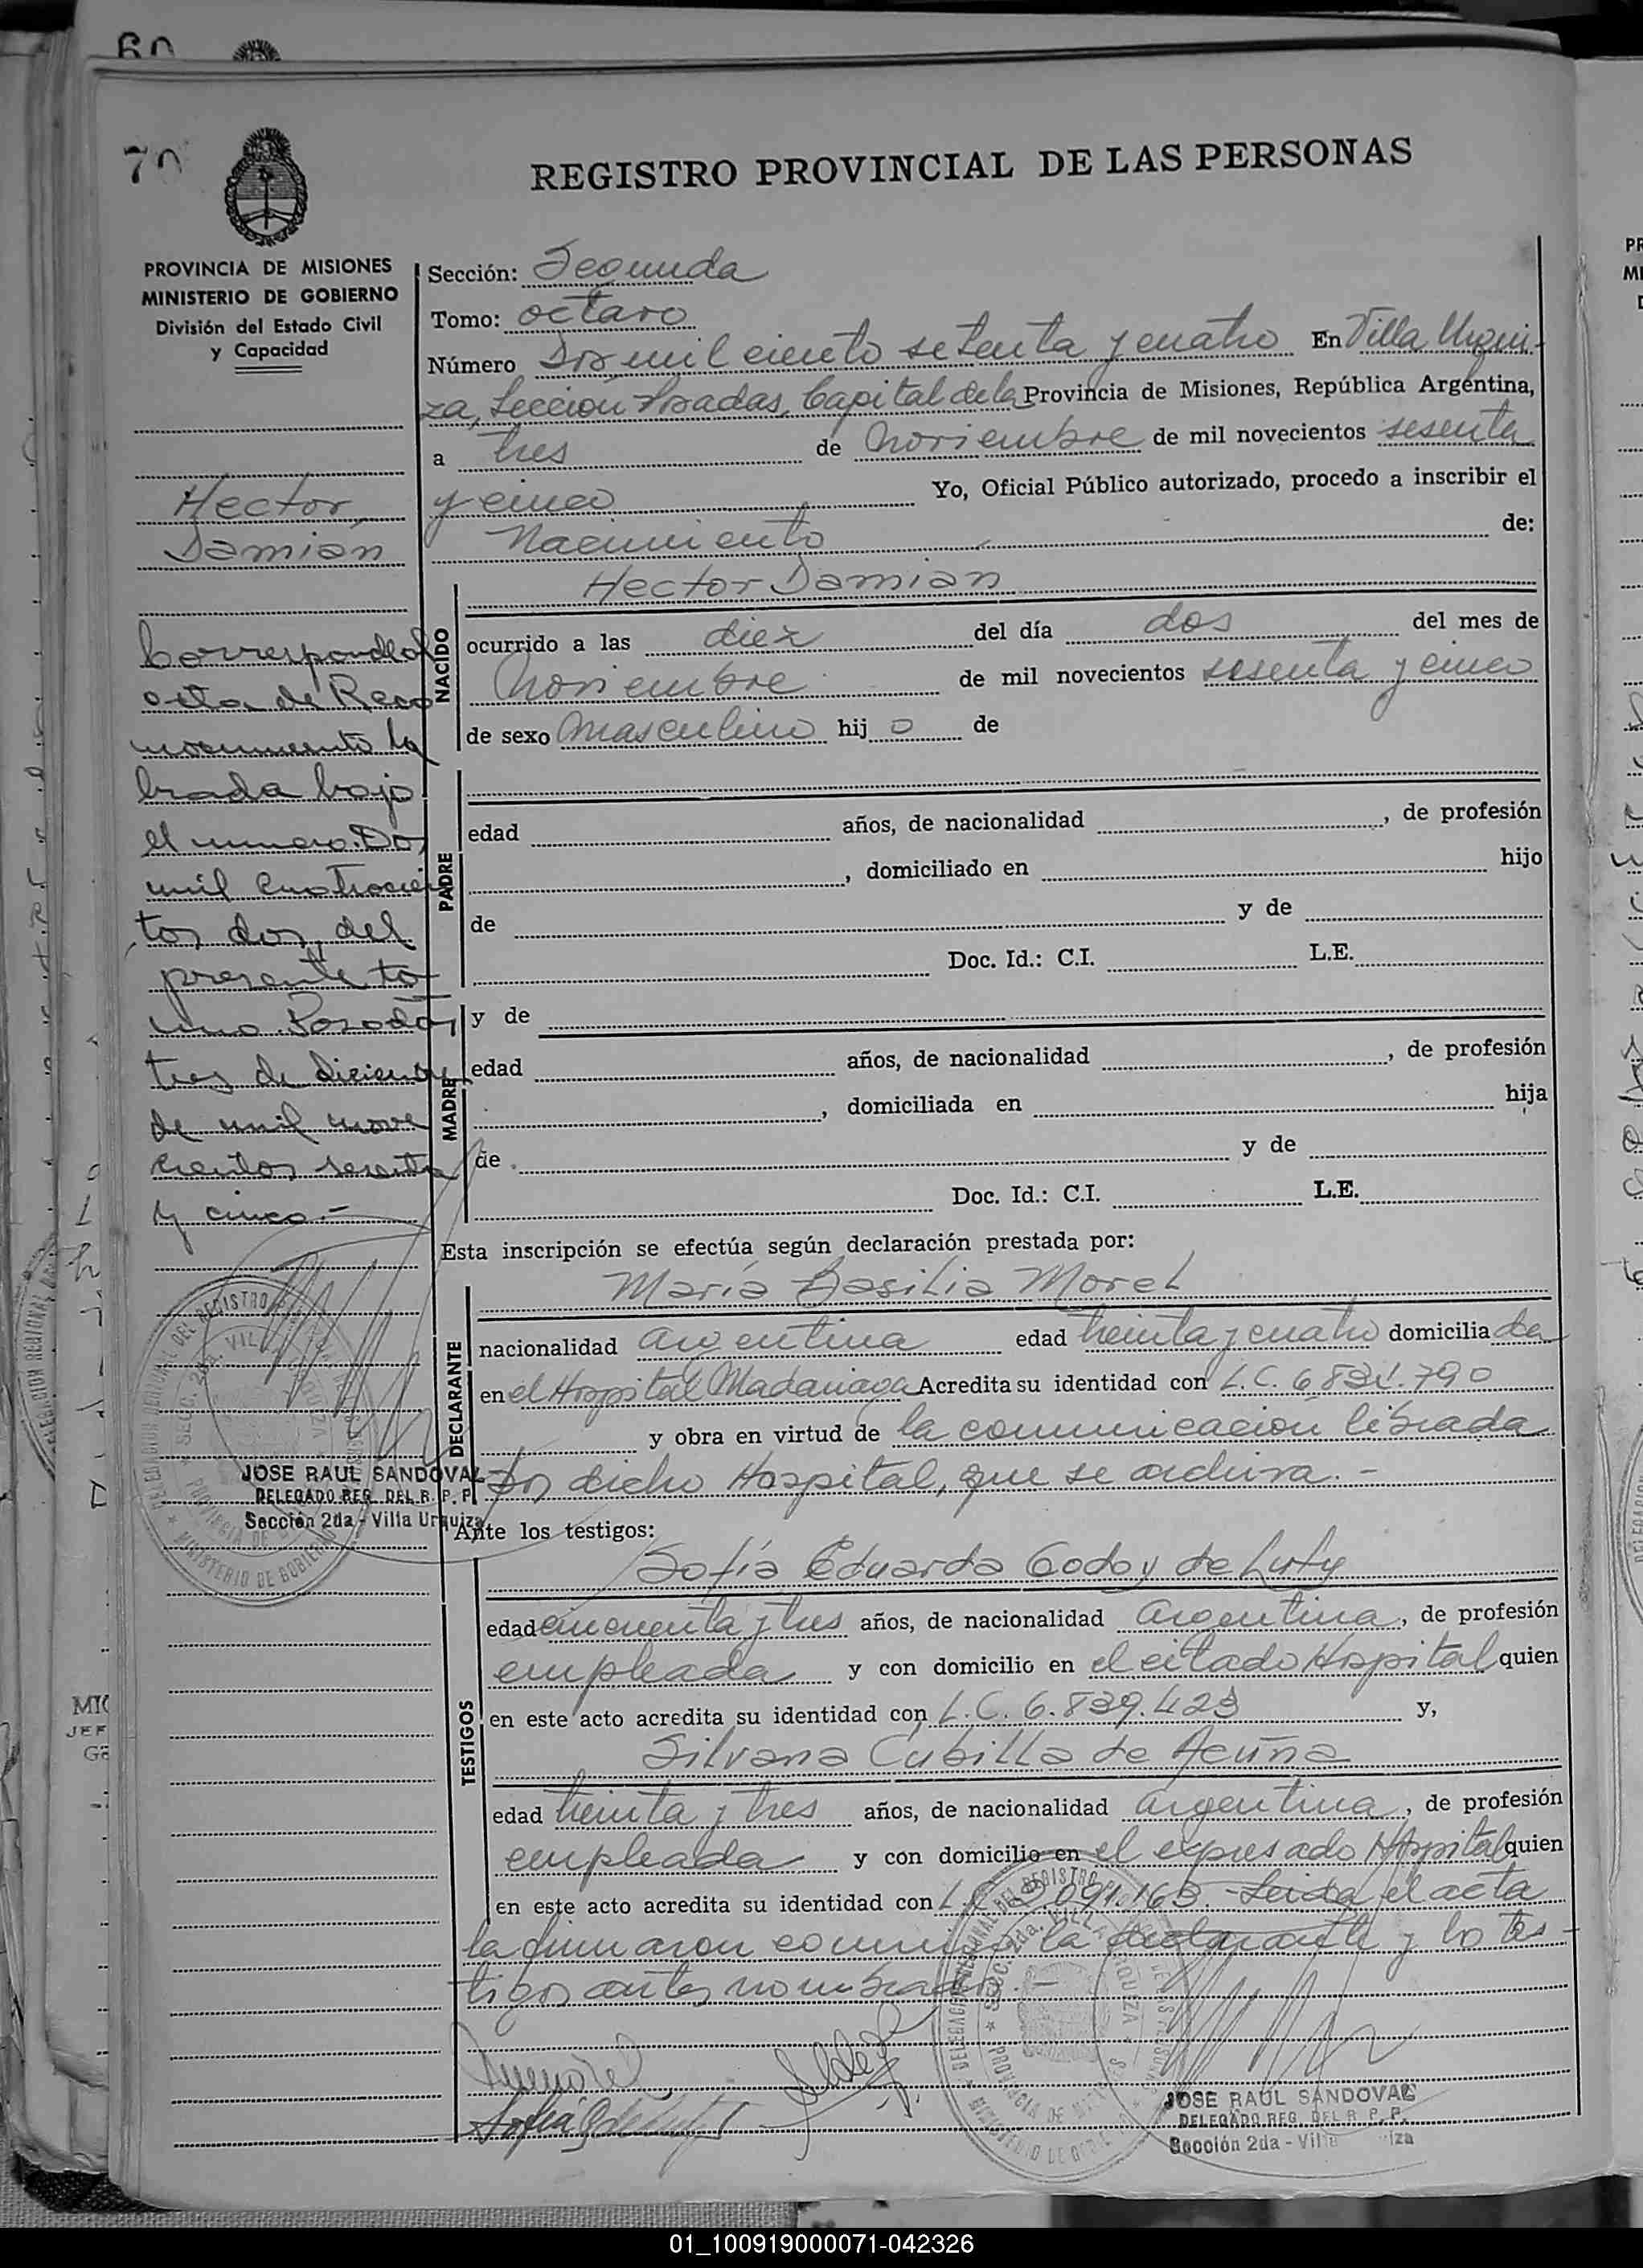 70
REGISTRO PROVINCIAL DE LAS PERSONAS
PROVINCIA DE MISIONES
MINISTERIO DE GOBIERNO
División del Estado Civil
y Capacidad
Hector
Damián
Corresponde al
acta de Reco
nocimiento la
brada bajo
el numero Dos
mil cuatrocien
tos dos, del
presente to
mo. Posadas
tres de diciembre
de mil nove
cientos sesenta
y cinco.-
JOSE RAUL SANDOVAL
DELEGADO REG. DEL R. P. P.
Sección 2da - Villa Urquiza
Sección: Segunda
Tomo: octavo
Número Dos mil ciento setenta y cuatro En Villa Urqui-
za, Sección Posadas, Capital de la Provincia de Misiones, República Argentina,
a tres de noviembre de mil novecientos sesenta
y cinco Yo, Oficial Público autorizado, procedo a inscribir el
Nacimiento de:
NACIDO
Hector Damian
ocurrido a las diez del día dos del mes de
Noviembre de mil novecientos sesenta y cinco
de sexo Masculino hij o de
PADRE
edad años, de nacionalidad , de profesión
, domiciliado en hijo
de y de
Doc. Id.: C.I. L.E.
MADRE
y de
edad años, de nacionalidad , de profesión
, domiciliada en hija
de y de
Doc. Id.: C.I. L.E.
Esta inscripción se efectúa según declaración prestada por:
DECLARANTE
María Basilia Morel
nacionalidad argentina edad treinta y cuatro domicilia da
en el Hospital Madariaga Acredita su identidad con L.C. 6.831.790
y obra en virtud de la comunicación librada
por dicho Hospital, que se archiva.-
Ante los testigos:
TESTIGOS
Sofía Eduarda Godoy de Luty
edad cincuenta y tres años, de nacionalidad argentina, de profesión
empleada y con domicilio en el citado Hospital quien
en este acto acredita su identidad con L.C. 6.839.423 y,
Silvana Cubilla de Acuña
edad treinta y tres años, de nacionalidad argentina, de profesión
empleada y con domicilio en el expresado Hospital quien
en este acto acredita su identidad con L.C. 091.163.- Leida el acta
la firmaron conmigo la declarante y los tes-
tigos antes nombrados.-
JOSE RAUL SANDOVAL
DELEGADO REG. DEL R. P. P.
Sección 2da - Villa iza
01_100919000071-042326